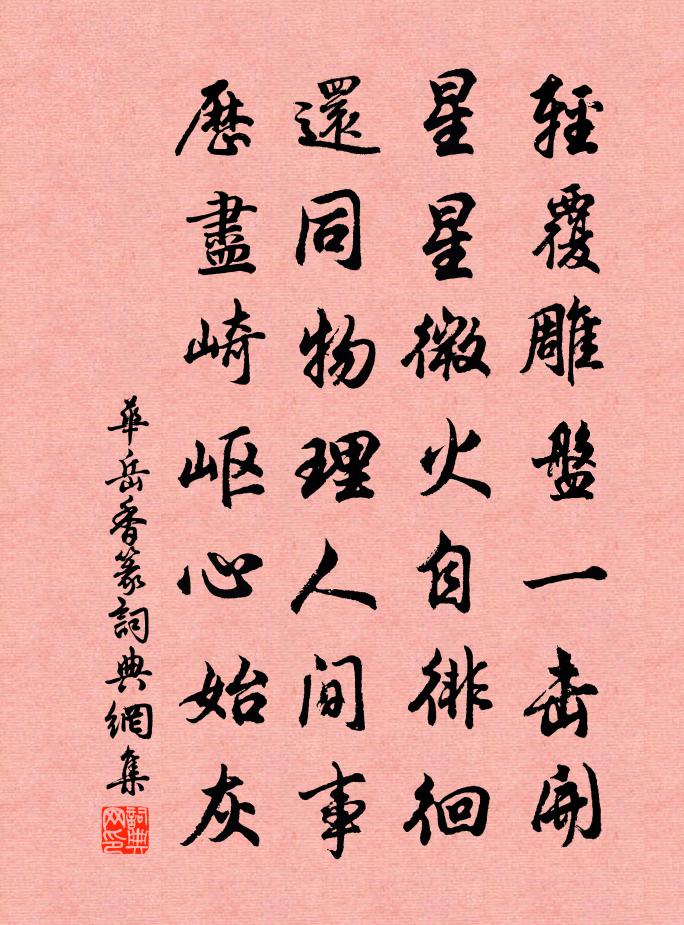 輕覆雕盤一击開
星星微火自徘徊
還同物理人間事
歷盡崎岖心始灰
華岳香篆詞典網集
詞典网印